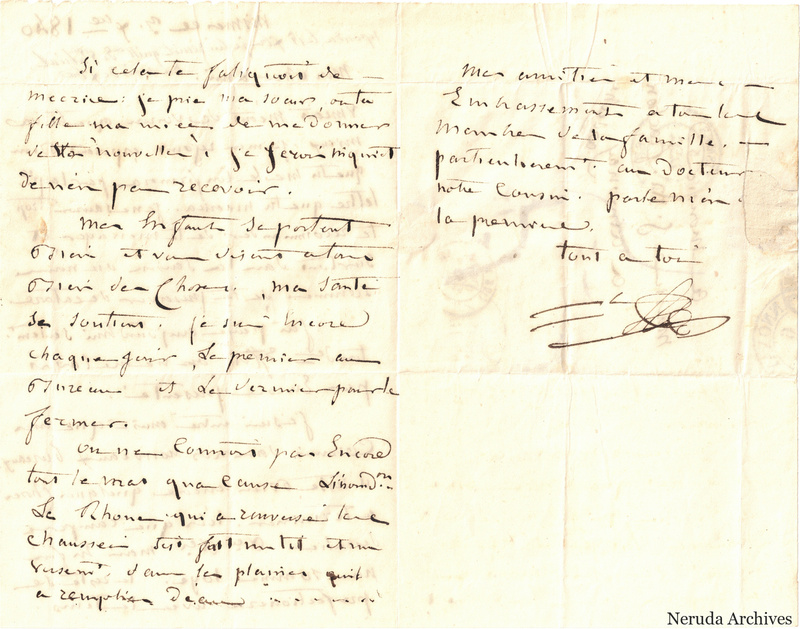 Si cela te fatiguoit de
m'ecrire: je prie ma soeur, ou ta
fille ma niece de me donner
de tes nouvelles; je serois inquiet
de n'en pas recevoir.
Mes Enfants se portent
Bien et vous disent a tous
Bien des Choses. ma santé
se soutient. je suis encore
chaque jour, Le premier au
Bureau et Le dernier pour le
fermer.
On ne Connoit pas Encore
tout le mal qu'a Causé L'inond.on
Le Rhone qui a renversé les
chaussées s'est fait un lit et un
versemt. dans les plaines qu'il
a remplies d'eau
Mes amitiés et mes
Embrassements a tous les
membres de ta famille.
particulieremt. au Docteur
notre Cousin.
la premiere.
tout a toi
Neruda Archives